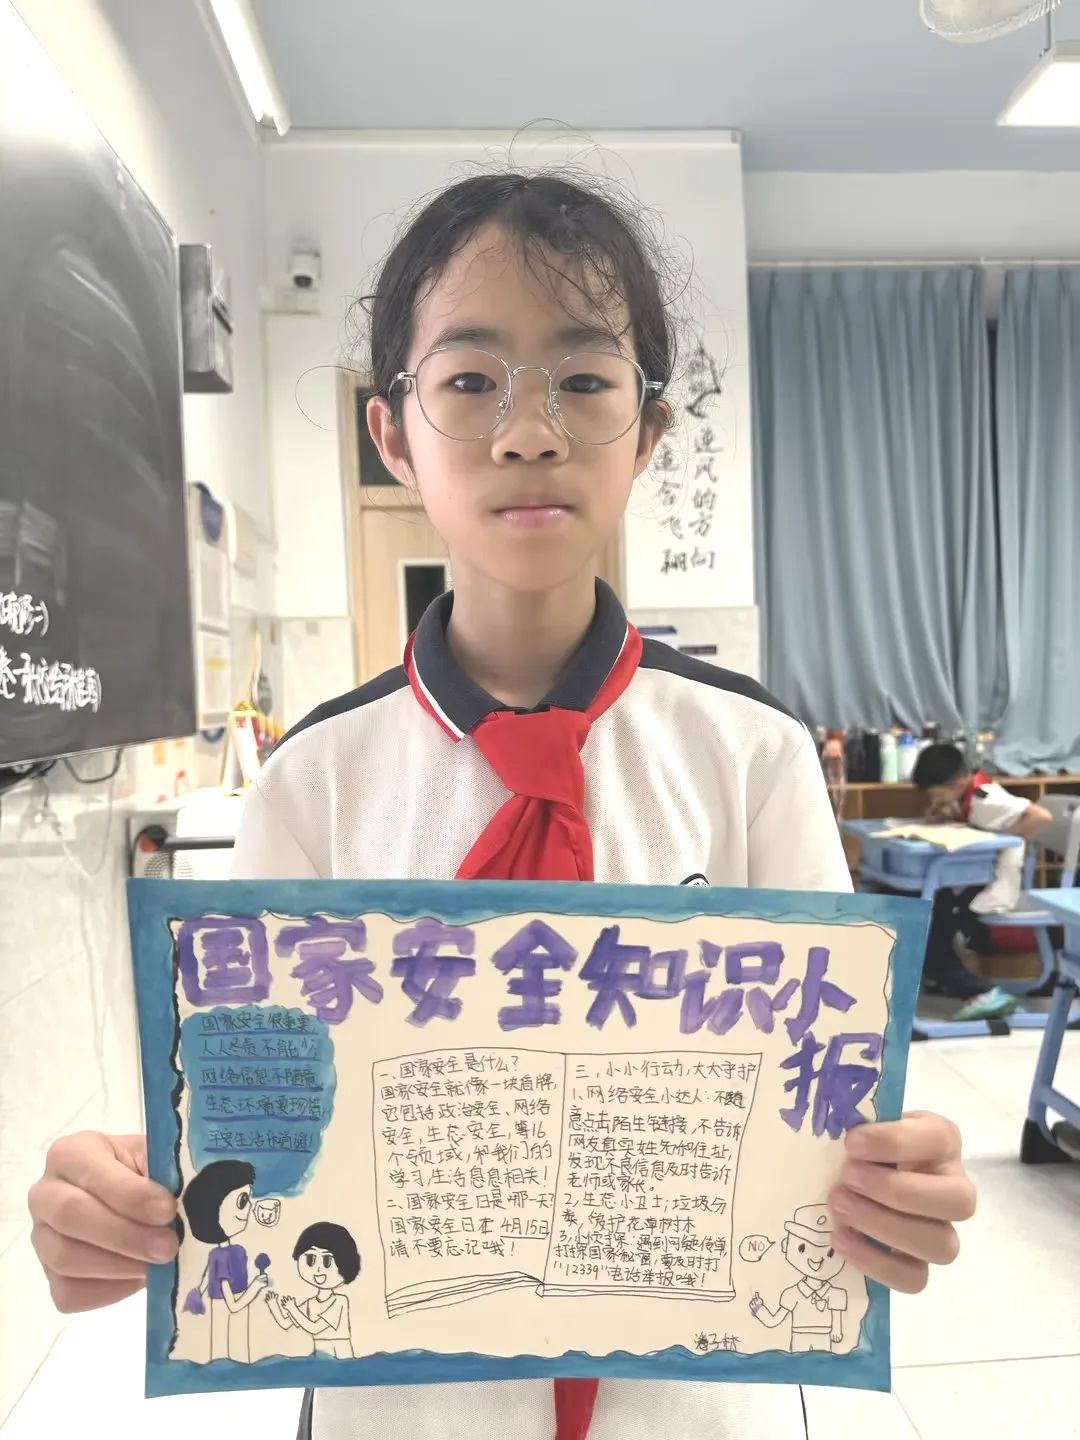 逆风的方向
更适合飞翔
国家安全知识小报
国家安全很重要,
人人尽责不能少,
网络信息不随意,
生态环境要珍惜,
平安生活你我逅!
一、国家安全是什么?
国家安全就像一块盾牌,
它包括政治安全、网络
安全,生态安全,等16
个领域,和我们的
学习,生活息息相关!
二、国家安全日是哪一天?
国家安全日在4月15日
请不要忘记哦!
三,小小行动,大大守护
1、网络安全小达人:不随
意点击陌生链接,不告诉
网友真实姓名和住址,
发现不良信息及时告诉
老师或家长。
2,生态小卫士;垃圾分
类,爱护花草树木
3,小侦探:遇到可疑传单,
打探国家秘密,要及时打
"12339"电话举报哦!
NO